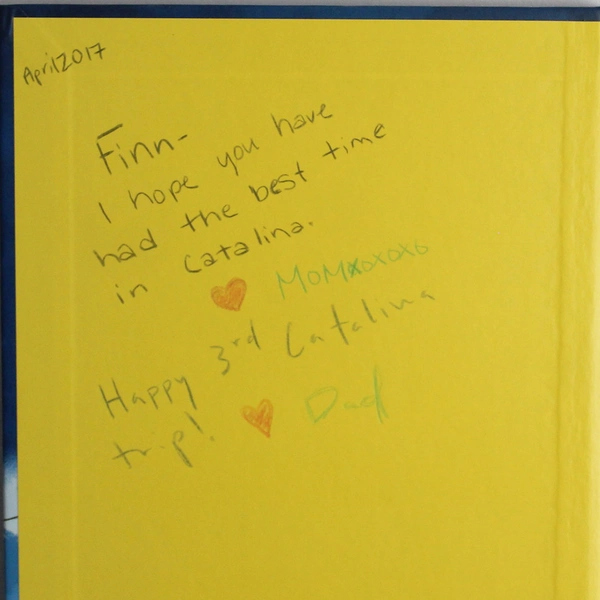 April 2017
Finn-
I hope you have
had the best time
in Catalina.
♥ MOMxoxoxo
Happy 3rd Catalina
trip! ♥ Dad